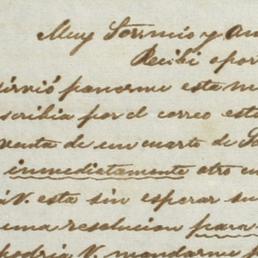 Muy Sr. mio y am
Recibi opor
sirvió ponerme esta ma
scribia por el correo esta
venta de un cuarto de
inmedietamente otro cu
á V. esta sin esperar su
una resolucion para
podria V. mandarme p